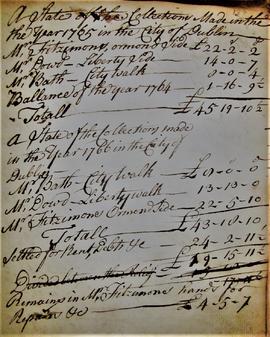 A State of the Collections Made in the
the Year 1765 in the City of Dublin
Mr. Fitzimons, Ormond Side 22-2-2
Mr. Dowd - Liberty Side 14-0-7
Mr. Bath - City Walk 0-0-4
Ballance of the Year 1764 1-16-9½
Totall £45 19-10½
A State of the Collections made
in the Year 1766 in the City of
Dublin
Mr. Bath - City Walk £
Mr. Dowd - Liberty walk 13-13-0
Mr. Fitzimons Ormond Side 22-5-10
Totall £43-18-10
Settled for Rent, Debts &c 24-2-11½
£19-15-11
Remains in Mr. Fitzimons hands for
Repairs &c £4-5-7